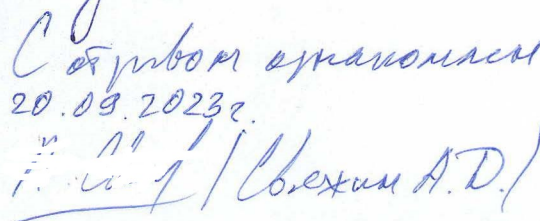 С отзывом ознакомлен
20.09.2023г.
/Свежин А.Д./